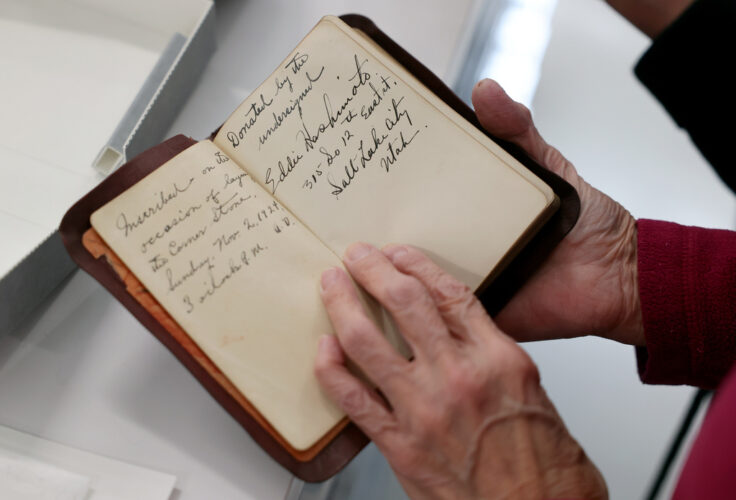 Inscribed on the
occasion of laying
the Corner Stone.
Sunday, Nov. 2, 1924.
3 o'clock P.M. A.D.
Donated by the
undersigned
Eddie Hashimoto
315 So 12th East st.
Salt Lake City
Utah.